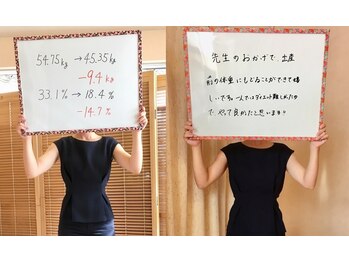 54.75kg → 45.35kg
-9.4kg
33.1% → 18.4%
-14.7%
先生のおかげで、出産
前の体重にもどることができて嬉
しいです。一人ではダイエット難しかったの
で、やって良かったと思います!!